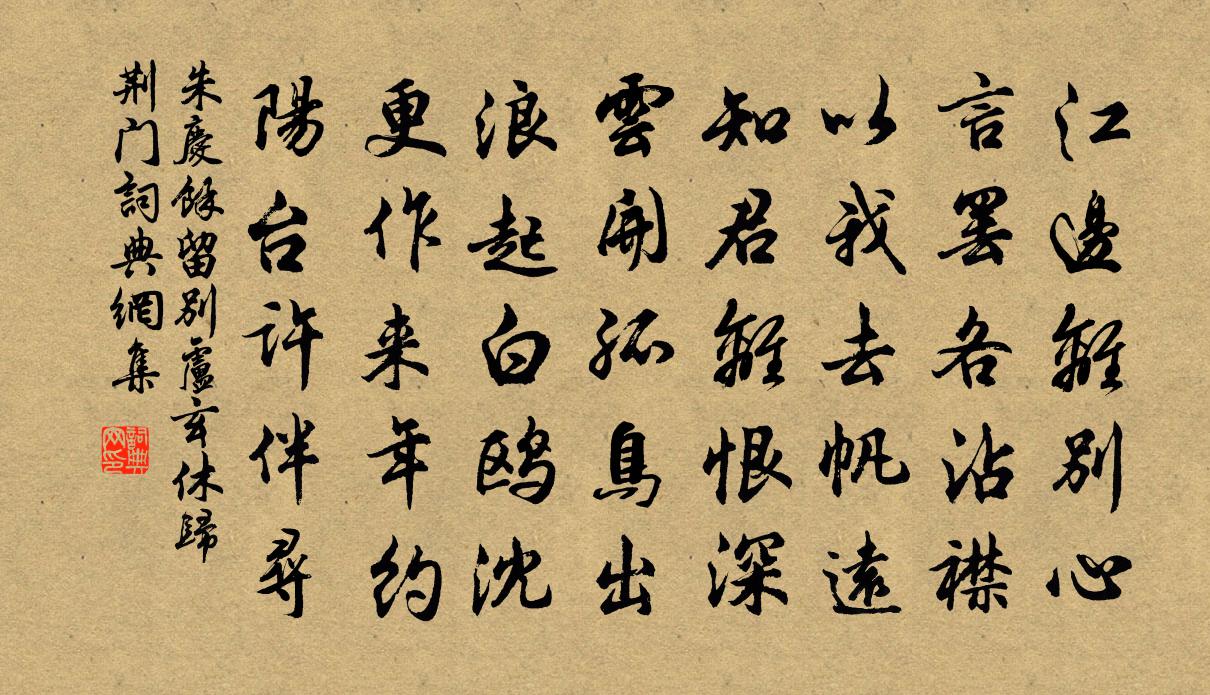 江邊離別心
言罷各沾襟
以我去帆遠
知君離恨深
雲開孤鳥出
浪起白鷗沈
更作来年約
陽台許伴尋
朱慶餘留別盧玄休歸
荆门詞典網集
詞典
网印